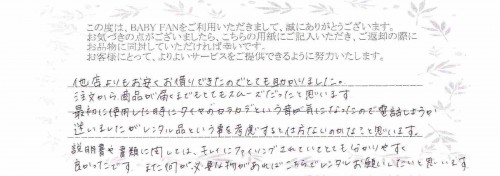 この度は、BABY FANをご利用いただきまして、誠にありがとうございます。
お気づきの点がございましたら、こちらの用紙にご記入いただき、ご返却の際に
お品物に同封していただければ幸いです。
お客様にとって、よりよいサービスをご提供できるように努力いたします。
他店よりもお安くお借りできたのでとても助かりました。
注文から商品が届くまでもとてもスムーズだったと思います
最初に使用した時にタイヤのカラカラという音が気になったので電話しようか
迷いましたがレンタル品という事を考慮すると仕方ないのかなと思います。
説明書や書類に関しては、キレイにファイリングされていてとても分かりやすく
良かったです。また何か必要な物があればこちらでレンタルお願いしたいと思います。